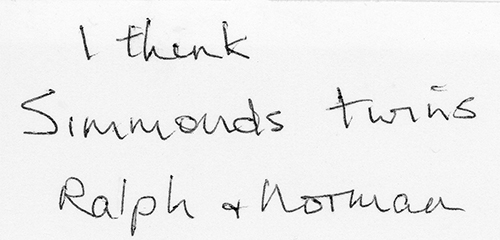 I think
Simmonds twins
Ralph + Norman